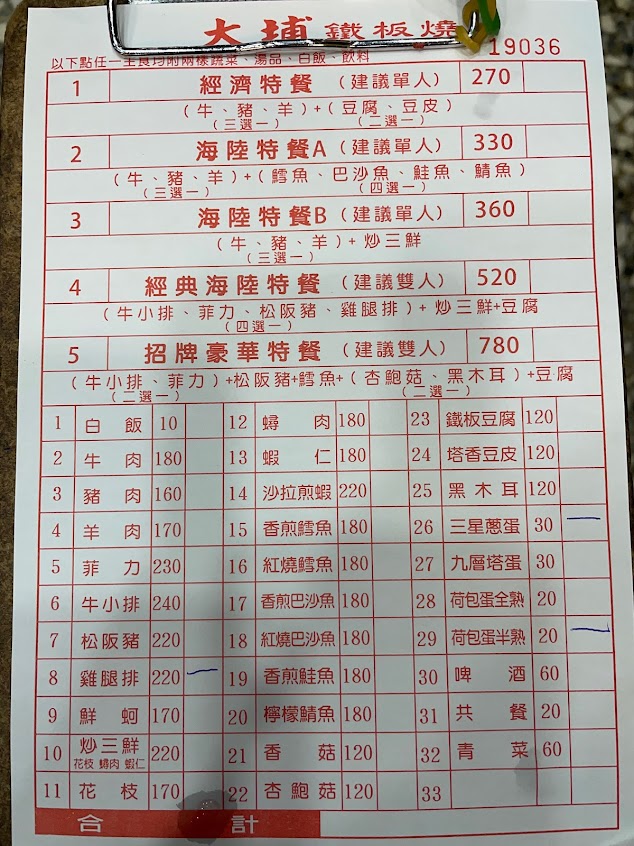 大埔鐵板燒
19036
以下點任一主食均附兩樣蔬菜、湯品、白飯、飲料
1 經濟特餐(建議單人) 270
(牛、豬、羊)+(豆腐、豆皮)
(三選一) (二選一)
2 海陸特餐A(建議單人) 330
(牛、豬、羊)+(鱈魚、巴沙魚、鮭魚、鯖魚)
(三選一) (四選一)
3 海陸特餐B(建議單人) 360
(牛、豬、羊)+炒三鮮
(三選一)
4 經典海陸特餐(建議雙人) 520
(牛小排、菲力、松阪豬、雞腿排)+炒三鮮+豆腐
(四選一)
5 招牌豪華特餐(建議雙人) 780
(牛小排、菲力)+松阪豬+鱈魚+(杏鮑菇、黑木耳)+豆腐
(二選一) (二選一)
1 白飯 10 12 蟳肉 180 23 鐵板豆腐 120
2 牛肉 180 13 蝦仁 180 24 塔香豆皮 120
3 豬肉 160 14 沙拉煎蝦 220 25 黑木耳 120
4 羊肉 170 15 香煎鱈魚 180 26 三星蔥蛋 30
5 菲力 230 16 紅燒鱈魚 180 27 九層塔蛋 30
6 牛小排 240 17 香煎巴沙魚 180 28 荷包蛋全熟 20
7 松阪豬 220 18 紅燒巴沙魚 180 29 荷包蛋半熟 20
8 雞腿排 220 19 香煎鮭魚 180 30 啤酒 60
9 鮮蚵 170 20 檸檬鯖魚 180 31 共餐 20
10 炒三鮮 220 21 香菇 120 32 青菜 60
花枝 蟳肉 蝦仁
11 花枝 170 22 杏鮑菇 120 33
合計